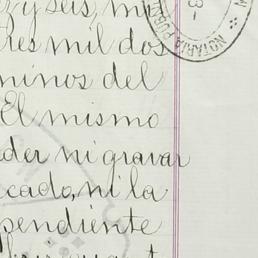 y seis, mi
tres mil dos
minos del
El mismo
der ni gravar
cado, ni la
pendiente
NOTARIA PUBLIC